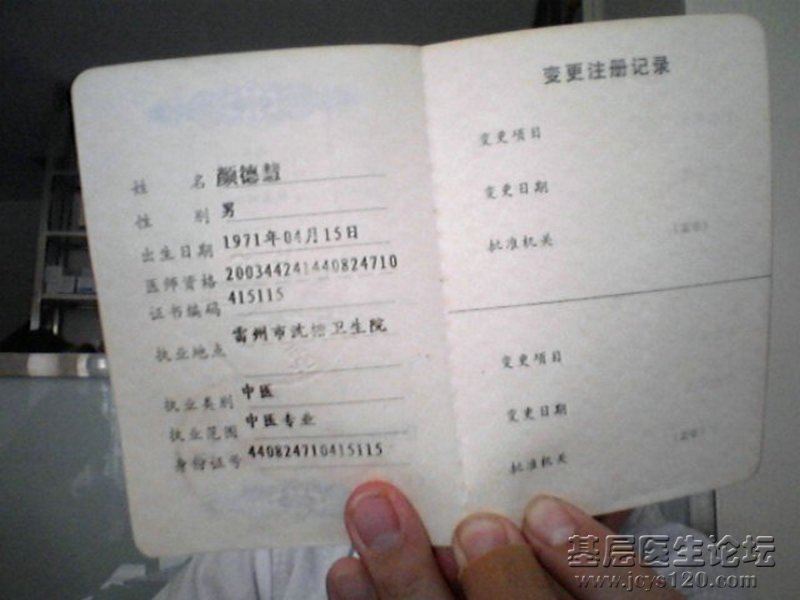 姓 名 颜德慧
性 别 男
出生日期 1971年04月15日
医师资格 200344241440824710
证书编码 415115
执业地点 雷州市沈塘卫生院
执业类别 中医
执业范围 中医专业
身份证号 440824710415115
变更注册记录
变更项目
变更日期
批准机关
变更项目
变更日期
批准机关
基层医生论坛
www.jcys120.com